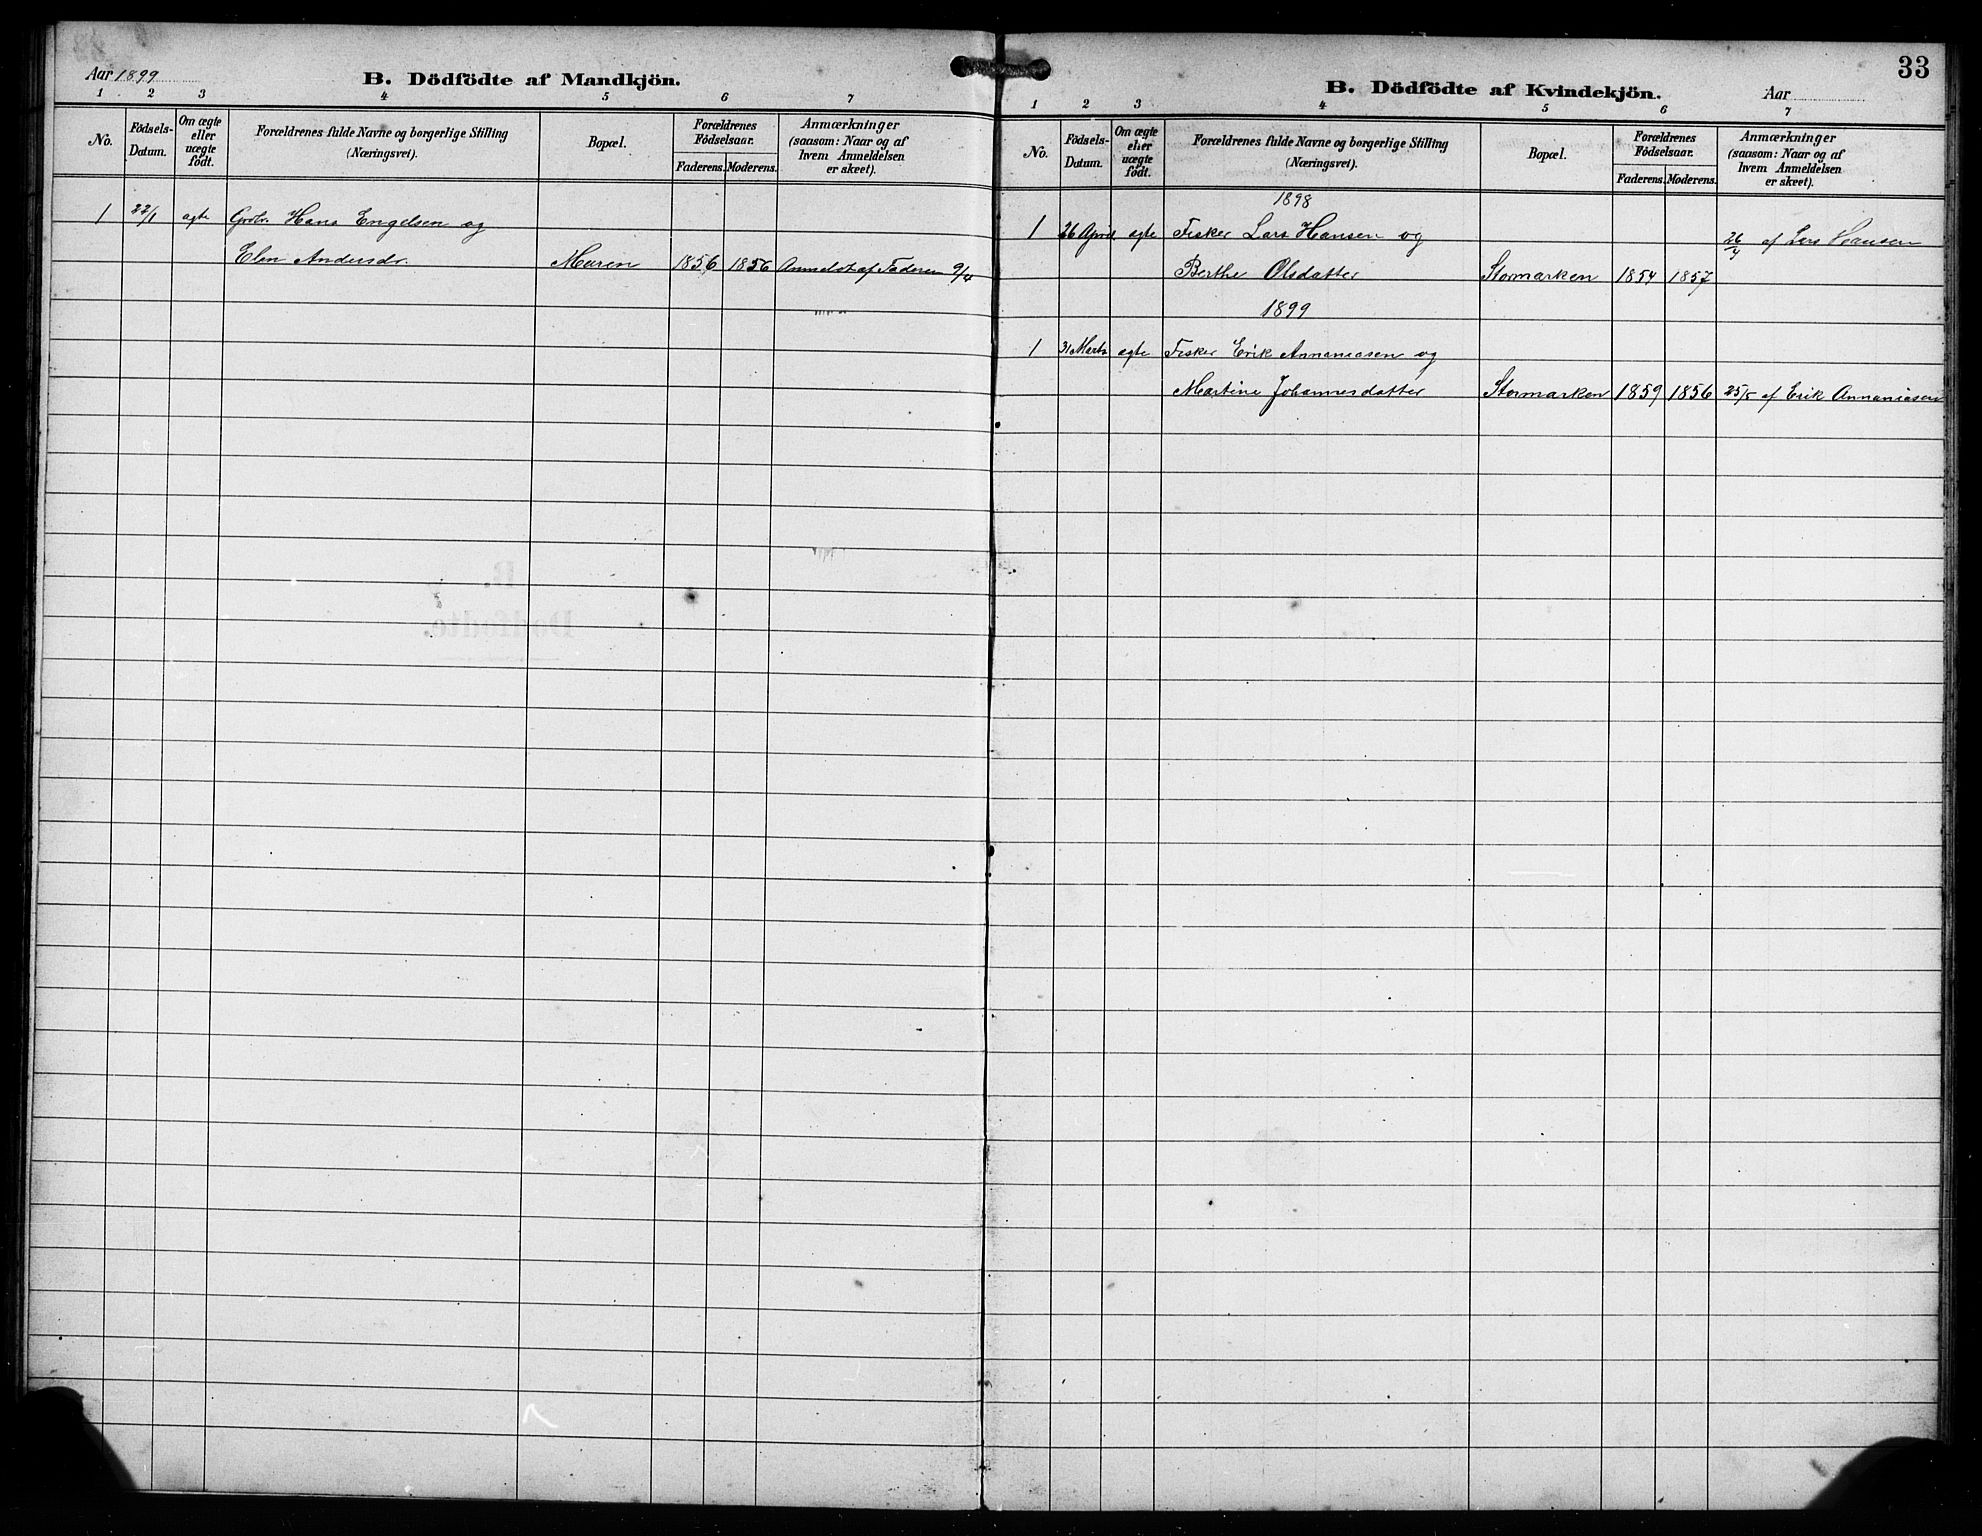 Aar 1899
B. Dödfödte af Mandkjön.
1 2 3 4 5 6 7
No.
Födsels-Datum.
Om ægte eller uægte födt.
Forældrenes fulde Navne og borgerlige Stilling (Næringsvei).
Bopæl.
Forældrenes Födselsaar.
Faderens. Moderens.
Anmærkninger (saasom: Naar og af hvem Anmeldelsen er skeet).
1 22/1 ægte Grdbr. Hans Engelsen og
Elen Andersdr. Maren 1856 1856 Anmeldt af Faderen 9/4
33
B. Dödfödte af Kvindekjön.
Aar
1 2 3 4 5 6 7
No.
Födsels-Datum.
Om ægte eller uægte födt.
Forældrenes fulde Navne og borgerlige Stilling (Næringsvei).
Bopæl.
Forældrenes Födselsaar.
Faderens. Moderens.
Anmærkninger (saasom: Naar og af hvem Anmeldelsen er skeet).
1898
1 26 April ægte Fisker Lars Hansen og 26/4 af Lars Hansen
Berthe Olsdatter Stormarken 1854 1857
1899
1 31 Marts ægte Fisker Erik Annaniasen og
Martine Johannesdatter Stormarken 1859 1856 25/5 af Erik Annaniasen
B.
Dødfødte.